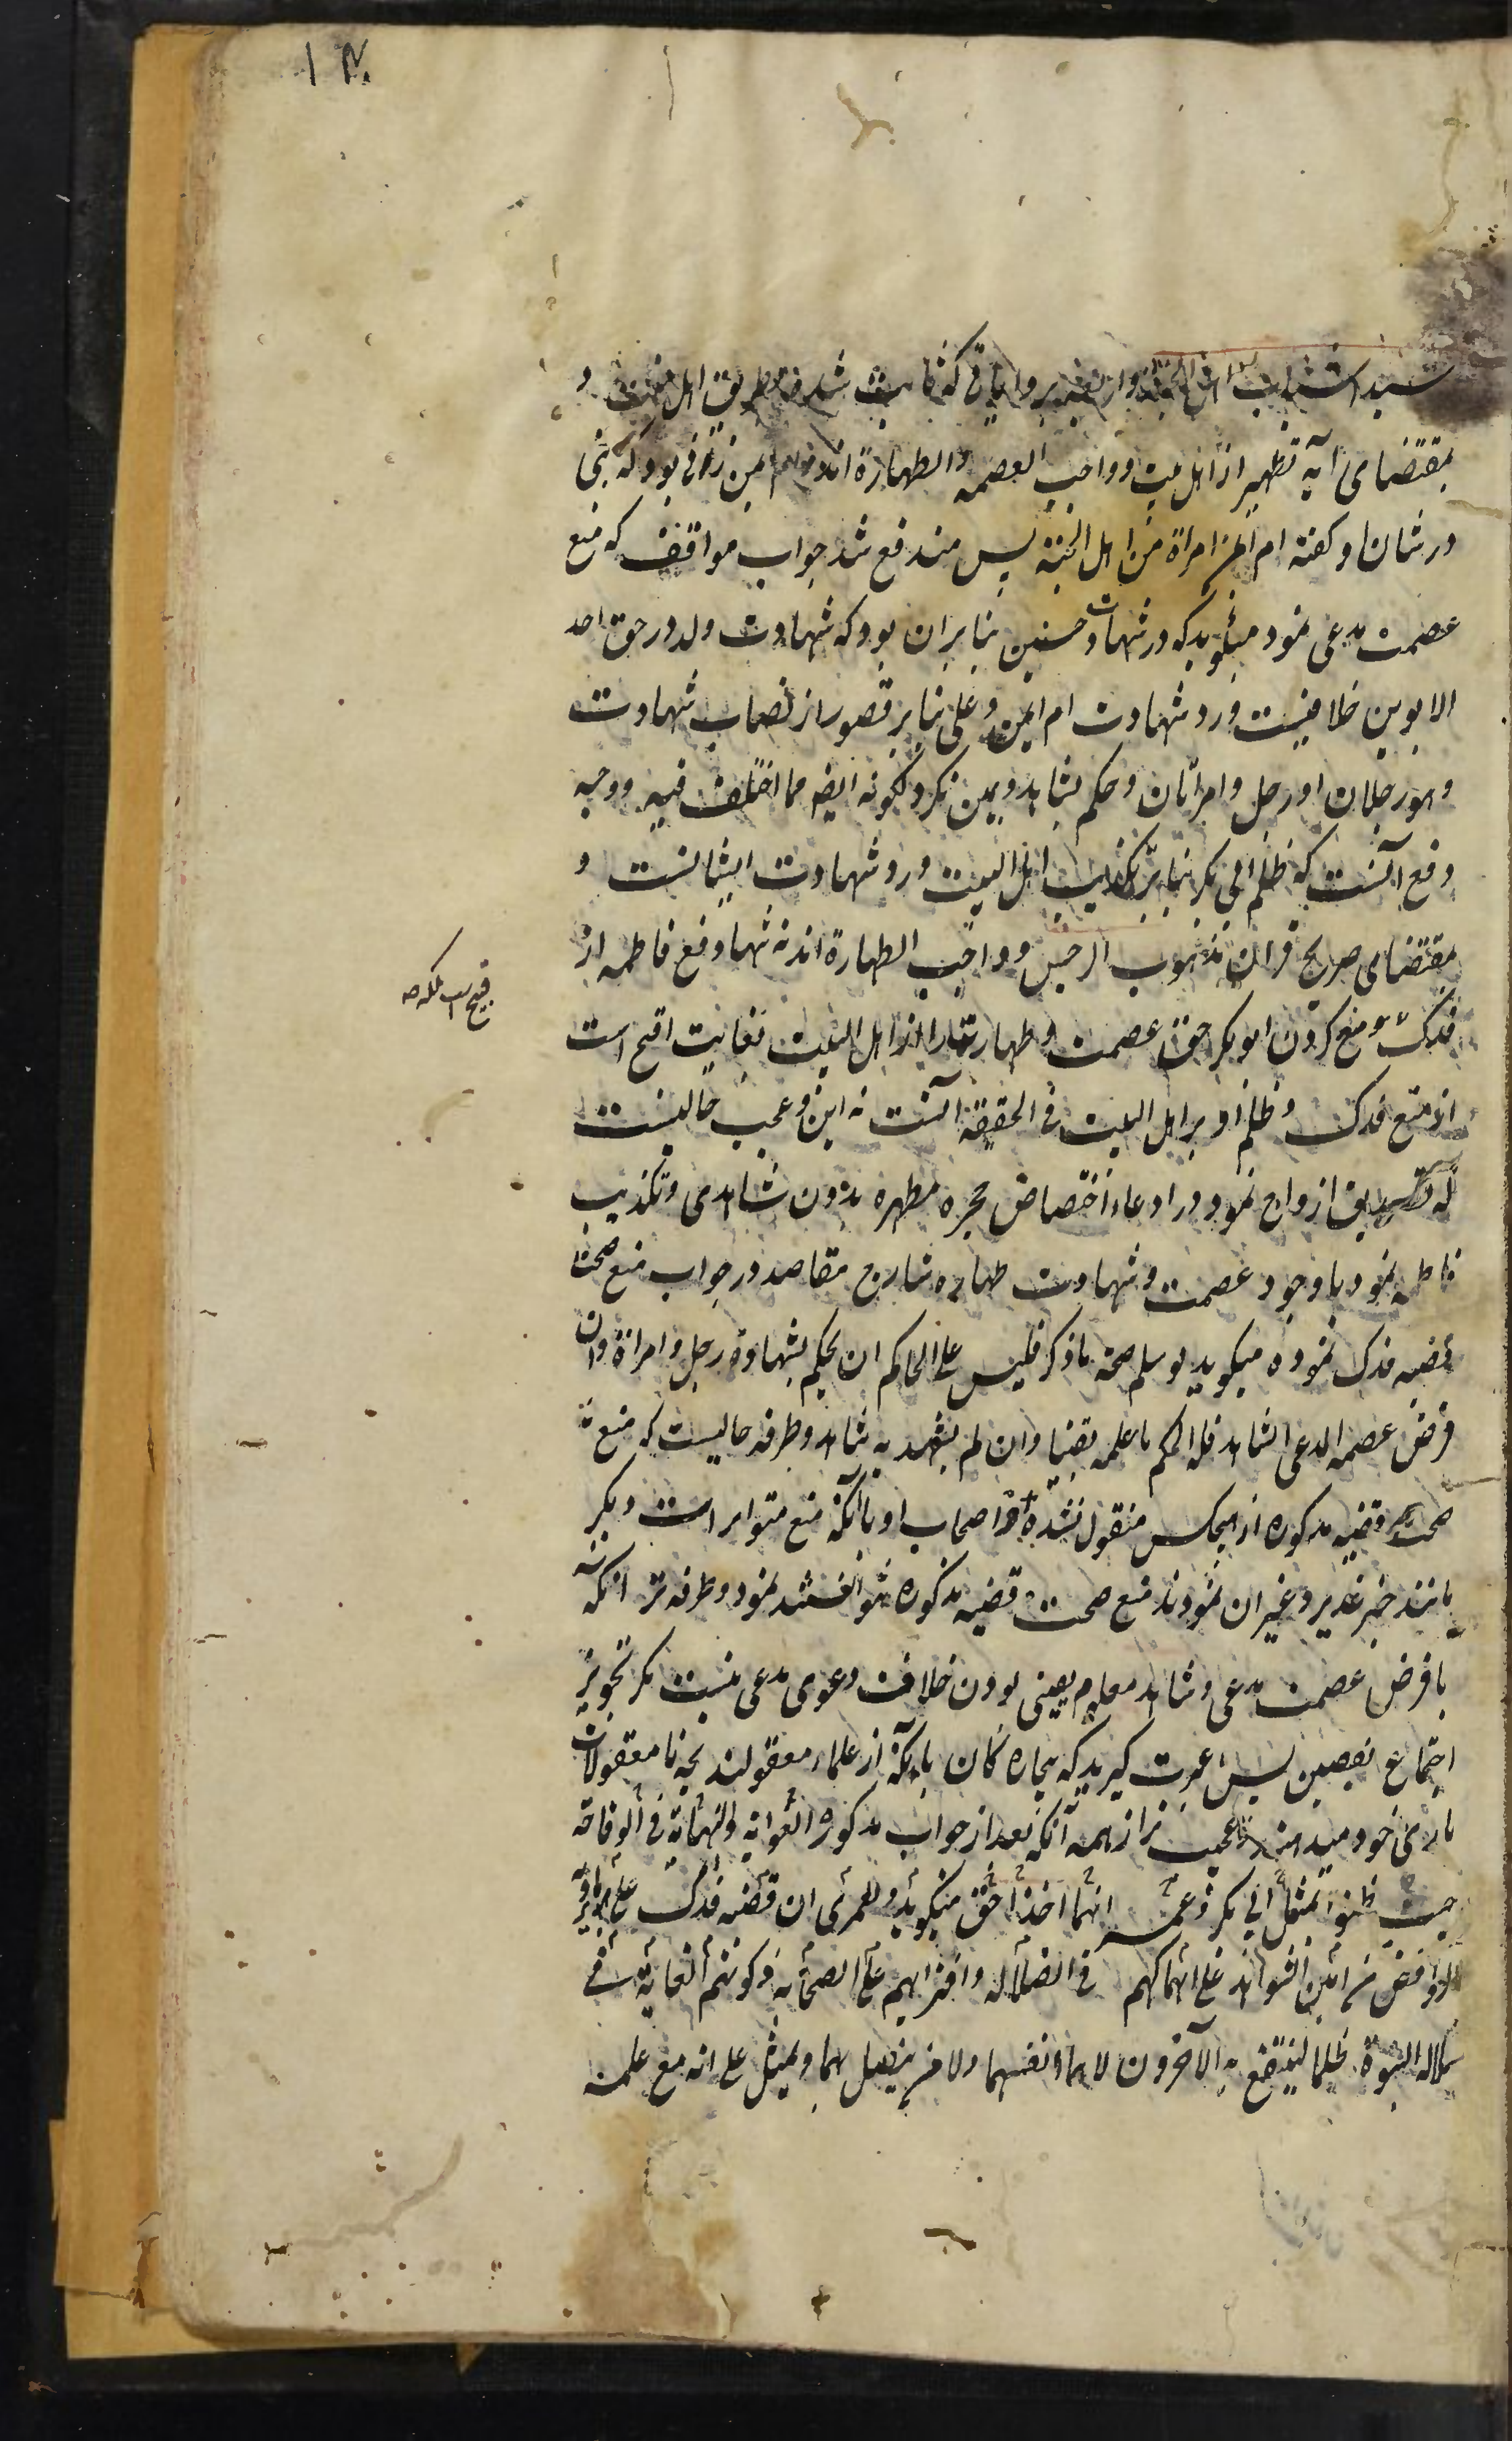 سیدا شباب اهل الجنة و از غیر روایاتی که ثابت شده بطریق اهل و
بمقتضای آیه تطهیر از اهل بیت و واجب العصمه و الطهارة اند و ام ایمن زنی بود که نبی
در شان او گفته ام ایمن امراة من اهل الجنة پس مندفع شد جواب مواقف که منع
عصمت مدعی نمود میگوید که رد شهادت حسنین بنابران بود که شهادت ولد در حق احد
الابوین خلافیست و رد شهادت ام ایمن و علی بنابر قصور از نصاب شهادت
وهو رجلان او رجل وامراتان و حکم بشاهد و یمین نکرد لکونه ایضا مما اختلف فیه و وجه
دفع آنست که ظلم ابی بکر بنابر تکذیب اهل البیت و رد شهادت ایشانست و
بمقتضای صریح قران مذهوب الرجس و واجب الطهارة اند نه تنها دفع فاطمه از
فدک و منع کردن ابو بکر حق عصمت و طهارت را از اهل البیت بغایت اقبح است
از منع فدک و ظلم او بر اهل البیت فی الحقیقة آنست نه این و عجب حالیست
که تصدیق ازواج نمود در ادعاء اختصاص حجره مطهره بدون شاهدی و تکذیب
فاطمه نمود با وجود عصمت و شهادت طهاره شارح مقاصد در جواب منع صحت
قضیه فدک نموده میگوید لو سلم صحة ما ذکر فلیس علی الحاکم ان یحکم بشهادة رجل وامراة وان
فرض عصمة المدعی الشاهد فله الحکم بما علمه یقینا وان لم یشهد به شاهد و طرفه حالیست که منع
صحت قضیه مذکوره از هیچکس منقول نشده از اصحاب او با آنکه منع متواتر است دیگر
مانند خبر غدیر و غیر ان نمودند منع صحت قضیه مذکوره نتوانستند نمود و طرفه تر انکه
با فرض عصمت مدعی و شاهد معلوم یقینی بودن خلافت دعوی مدعی نیست مگر تجویز
اجتماع نقیضین پس عبرت گیرید که بیچاره کان با آنکه از علماء معقولند بچه نا معقولات
یاری خود میدهند و عجیب تر از همه آنکه بعد از جواب مذکوره الغوایة والنهایة فی الوقاحة
حیث ظنوا بمثل ابی بکر و عمر انهما اخذا حق میگوید و لعمری ان قضیه فدک علی ما یرویه
الروافض من ابین الشواهد علی انهماکهم فی الضلالة وافترائهم علی الصحابة وکونهم الغایة فی
سلالة النبوة ظلما لینتفع به الآخرون لا هما انفسهما ولا من یتصل بهما وبمثل علی انه مع علمه
قبیح است بلکه صه